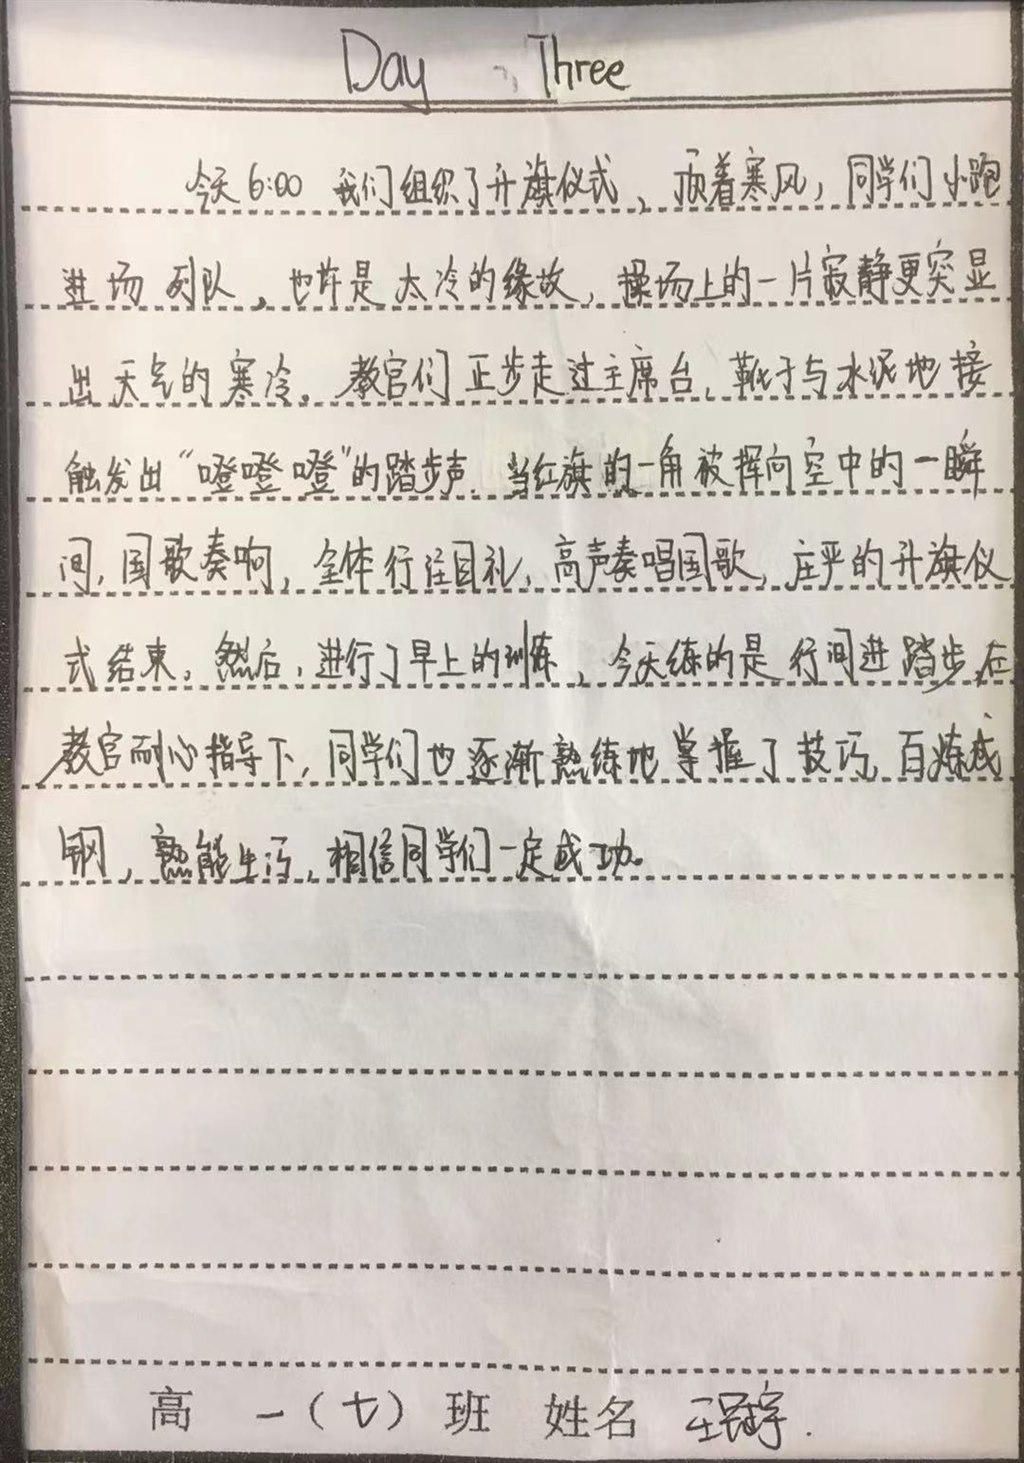 Day Three
今天6:00 我们组织了升旗仪式，顶着寒风，同学们小跑
进场列队，也许是太冷的缘故，操场上的一片寂静更突显
出天气的寒冷。教官们正步走过主席台，靴子与水泥地接
触发出“噔噔噔”的踏步声。当红旗的一角被挥向空中的一瞬
间，国歌奏响，全体行注目礼，高声奏唱国歌，庄严的升旗仪
式结束。然后，进行了早上的训练，今天练的是行间进踏步，在
教官耐心指导下，同学们也逐渐熟练地掌握了技巧，百炼成
钢，熟能生巧，相信同学们一定成功。
高一（七）班 姓名 王